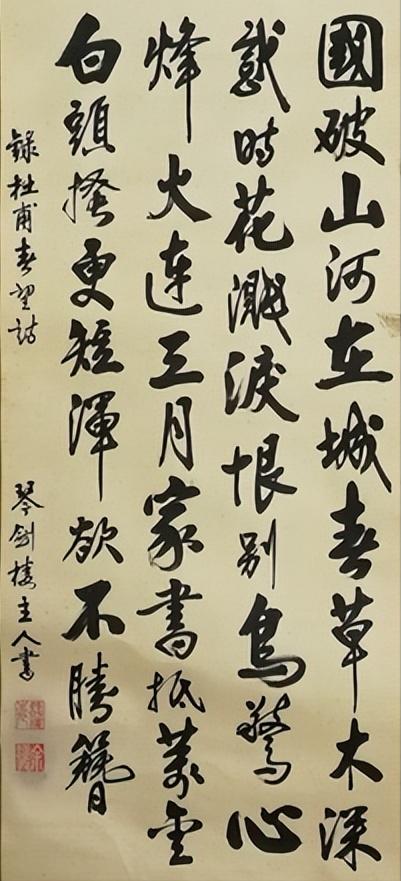 國破山河在城春草木深
感時花濺淚恨別鳥驚心
烽火連三月家書抵萬金
白頭搔更短渾欲不勝簪
錄杜甫春望詩
琴劍樓主人書